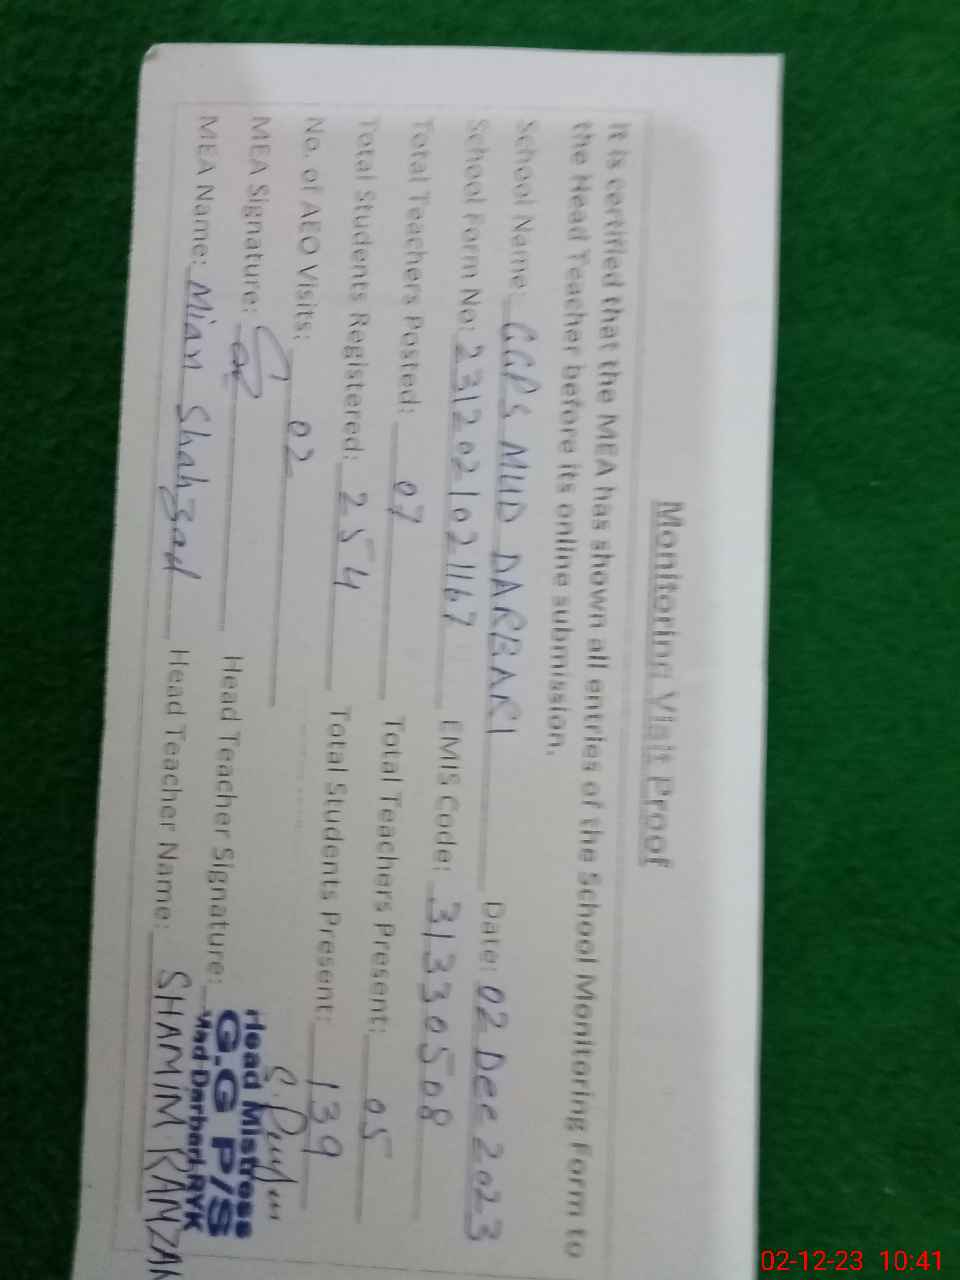 Monitoring Visit Proof
It is certified that the MEA has shown all entries of the School Monitoring Form to
the Head Teacher before its online submission.
School Name: GGPS MUD DARBARI Date: 02 Dec 2023
School Form No: 2312021021167 EMIS Code: 31330508
Total Teachers Posted: 07 Total Teachers Present: 05
Total Students Registered: 254 Total Students Present: 139
No. of AEO Visits: 02
MEA Signature: Head Teacher Signature:
Head Mistress
G.G P/S
Mud Darbari RYK
MEA Name: Mian Shahzad Head Teacher Name: SHAMIM RAMZAN
02-12-23 10:41